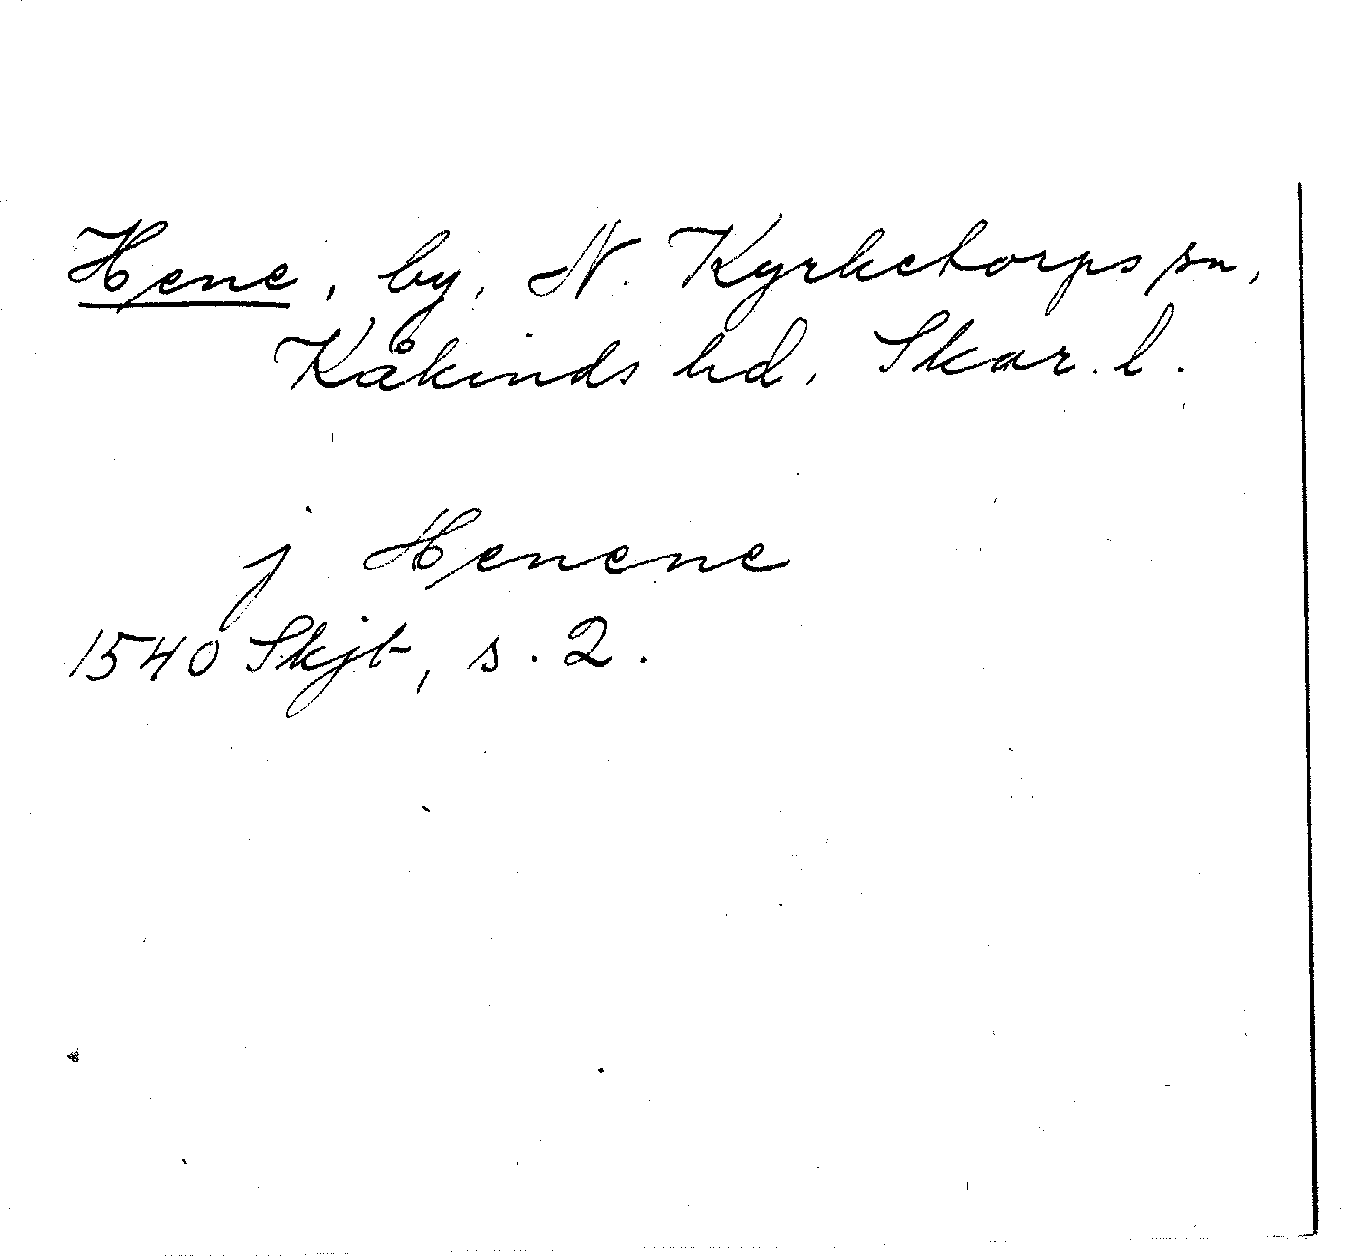 Hene, by, N. Kyrketorps sn,
Kåkinds hd, Skar. l.
j Henene
1540 Skjb, s. 2.